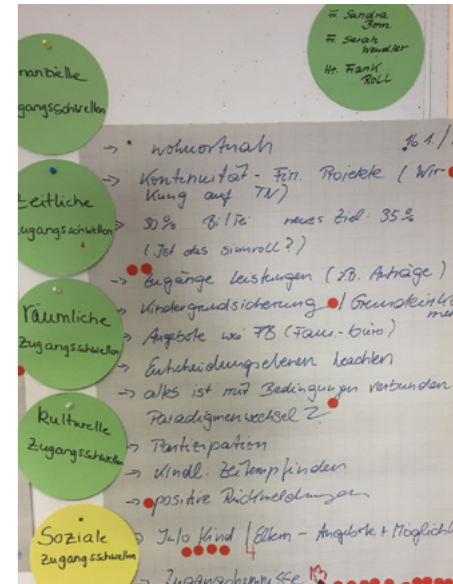 Fr. Sandra
Born
Fr. Sarah
Wendler
Hr. Frank
Roll
nanzielle
gangsschwellen
Zeitliche
ugangsschwellen
räumliche
Zugangsschwellen
Kulturelle
Zugangsschwellen
Soziale
Zugangsschwellen
16.1./
-> wohnortnah
-> Kontinuität - Fin. Projekte (Wir-
kung auf TN)
30% BilTei neues Ziel: 35%
(Ist das sinnvoll?)
-> Zugänge Leistungen (z.B. Anträge)
-> Kindergrundsicherung / Grundeinko
-> Angebote wie FB (Fam.-büro)
-> Entscheidungsebenen beachten
-> alles ist mit Bedingungen verbunden
Paradigmenwechsel?
-> Partizipation
-> Kindl. Zeitempfinden
-> positive Rückmeldungen
-> Info Kind / Eltern - Angebote + Möglichk